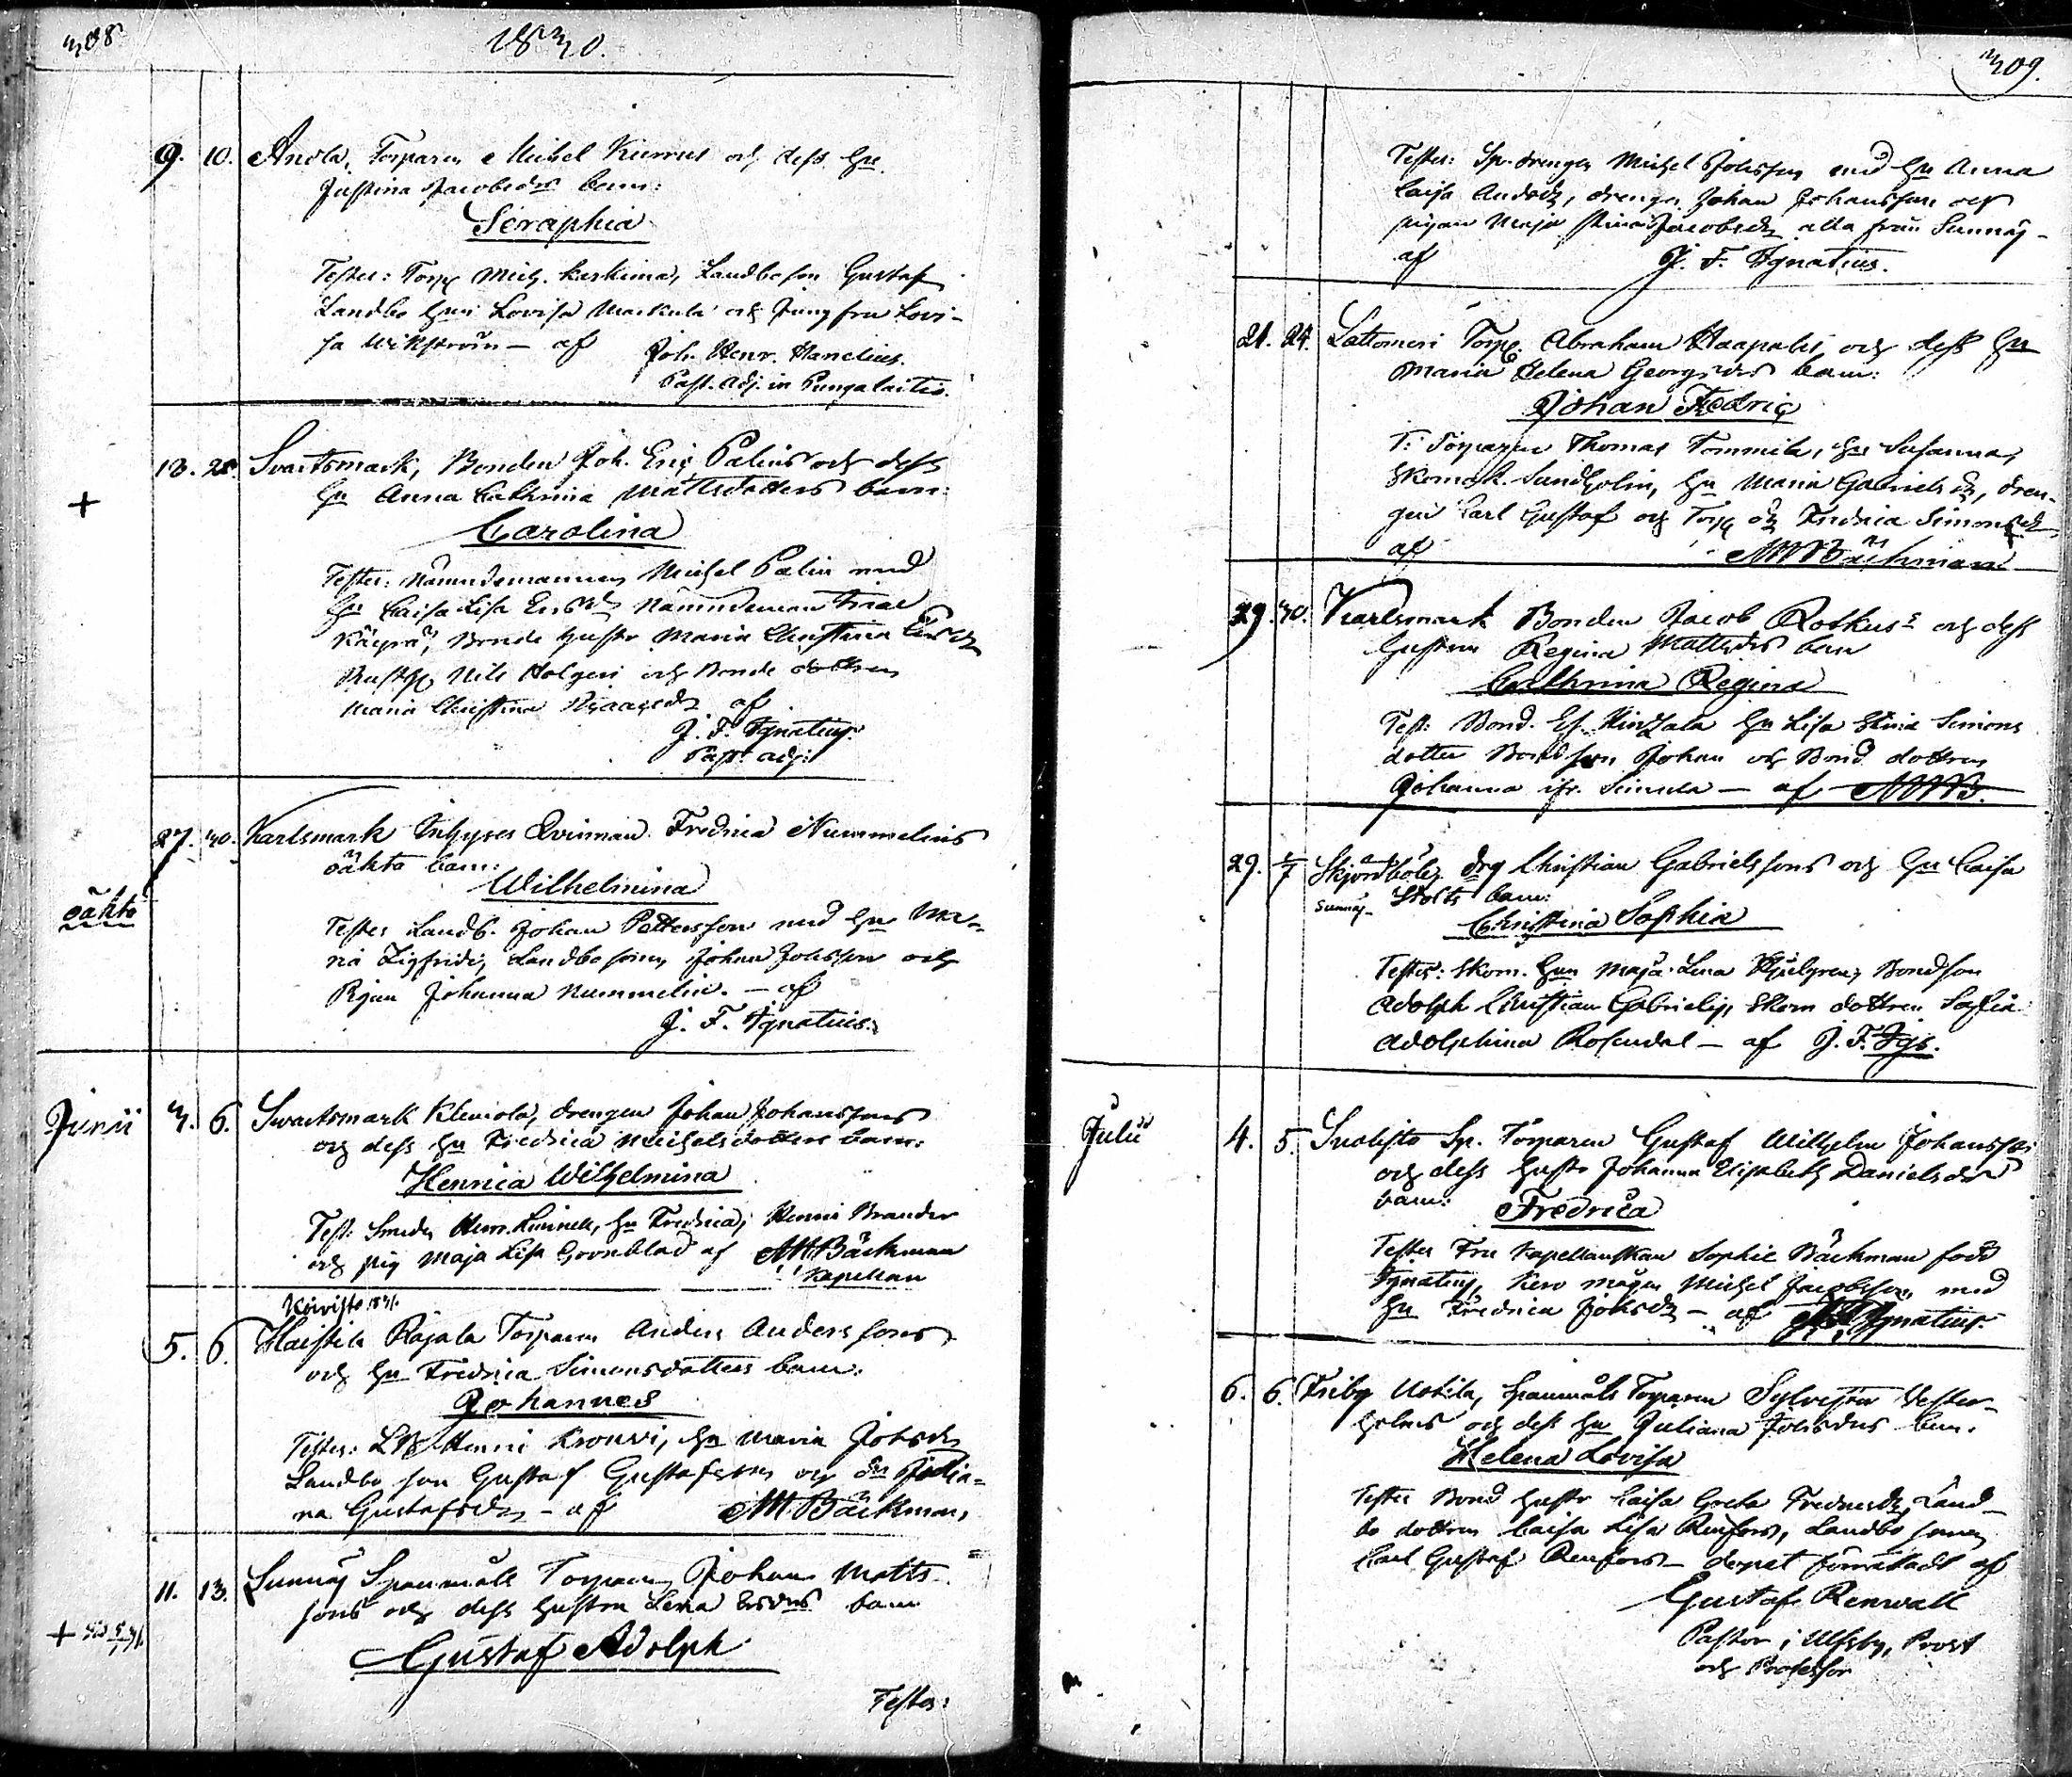 308
1830.
9. 10. Anola, Torparen Michel Kurrus och dess hu
Justina Jacobsdrs barn:
Seraphia
Testes: Torp Mich. Keskima, Landbosen Gustaf
Landbo hun Lovisa Markula och Jungfru Lovi-
sa Wikström - af Joh. Henr. Hanelius.
Past. adj. in Pungalaitio.
+
13. 25. Svartsmark, Bonden Joh. Eric Palins och dess
hu Anna Cathrina Mattsdotters barn:
Carolina
Testes: Nämndemannen Michel Palin med
hu Caisa Lisa Ersdr Nämndeman
Bonde hustr Maria Christina Ersdr
Nils Holgeri och Bonde dottren
Maria Christina Isaacsdr af
J. F. Ignatius.
Past. adj:
27. 30. Karlsmark Inhyses Qvinnan Fredrica Nummelins
oäkta barn:
Wilhelmina
oäkta
Testes Landb. Johan Pettersson med hu Ma-
ria Zigfridr, Landbosonen Johan Johsson och
Pigan Johanna Nummelin. - af
J. F. Ignatius.
Junii 3. 6. Svartsmark Klemola, drengen Johan Johanssons
och dess hu Fredrica Michelsdotters barn:
Henrica Wilhelmina
Test: Smeden Henr. Linnell, hu Fredrica, Henric Brander
och pig Maja Lisa Grönblad af MBäckman
Kapellan
Koivisto 1831.
5. 6. Haistila Rajala Torparen Anders Anderssons
och hu Fredrica Simonsdotters barn:
Johannes
Testes: LB Henric Krouvi, hu Maria Johsdr
Landbo son Gustaf Gustafsson och dr Julia-
na Gustafsdr - af MBäckman,
11. 13. Sunnäs Spanmåls Torparen Johan Matts-
sons och dess hustru Lena Ersdrs barn
Gustaf Adolph
+
Testes:
309.
Testes: Sp. drengen Michel Johsson med hu Anna
Caisa Andsdr, drengen Johan Johansson och
pigan Maja Stina Jacobsdr alla från Sunnäs -
af J. F. Ignatius.
21. 24. Lattomeri Torp. Abraham Haapalas och dess hu
Maria Helena Georgsdrs barn:
Johan Fredric
T: Torparen Thomas Tommila, hu Susanna,
Skomak. Sundholm, hu Maria Gabrielsdr, dren-
gen Carl Gustaf och Torp dr Fredrica Simonsdr
af MBäckman
29. 30. Karlsmark Bonden Jacob Rotkus och dess
hustrus Regina Mattsdrs barn
Cathrina Regina
Test: Bond. Es. Hinsala hu Lisa Stina Simons
dotter Bondson Johan och Bond dottren
Johanna ifr. Simula - af MB.
29. 4/7 Skjordböle, drg Christian Gabrielssons och hu Caisa
Sunnäs Stolts barn:
Christina Sophia
Testes: Skom. hun Maja Lena Bondson
Adolph Christian Gabrielss, Skom dottren Sophia
Adolphina Rosendal - af J. F. Igs.
Julii 4. 5. Snolisto Sp. Torparen Gustaf Wilhelm Johanssons
och dess hustr Johanna Elisabeth Danielsdrs
barn: Fredrica
Testes Fru Kapellanskan Sophie Bäckman född
Ignatius, Michel Jacobsson med
hu Fredrica Johsdr - af Ignatius.
6. 6. Friby Uotila, Spanmåls Torparen Sylvester Vester-
holms och dess hu Juliana Johsdrs barn.
Helena Lovisa
Testes Bond hustr Caisa Greta Fredricsdr, Land-
bo dottren Caisa Lisa Renfors, Landbo sonen
Carl Gustaf Renfors - dopet förrättadt af
Gustaf Renvall
Pastor i Ulfsby, Prost
och Professor